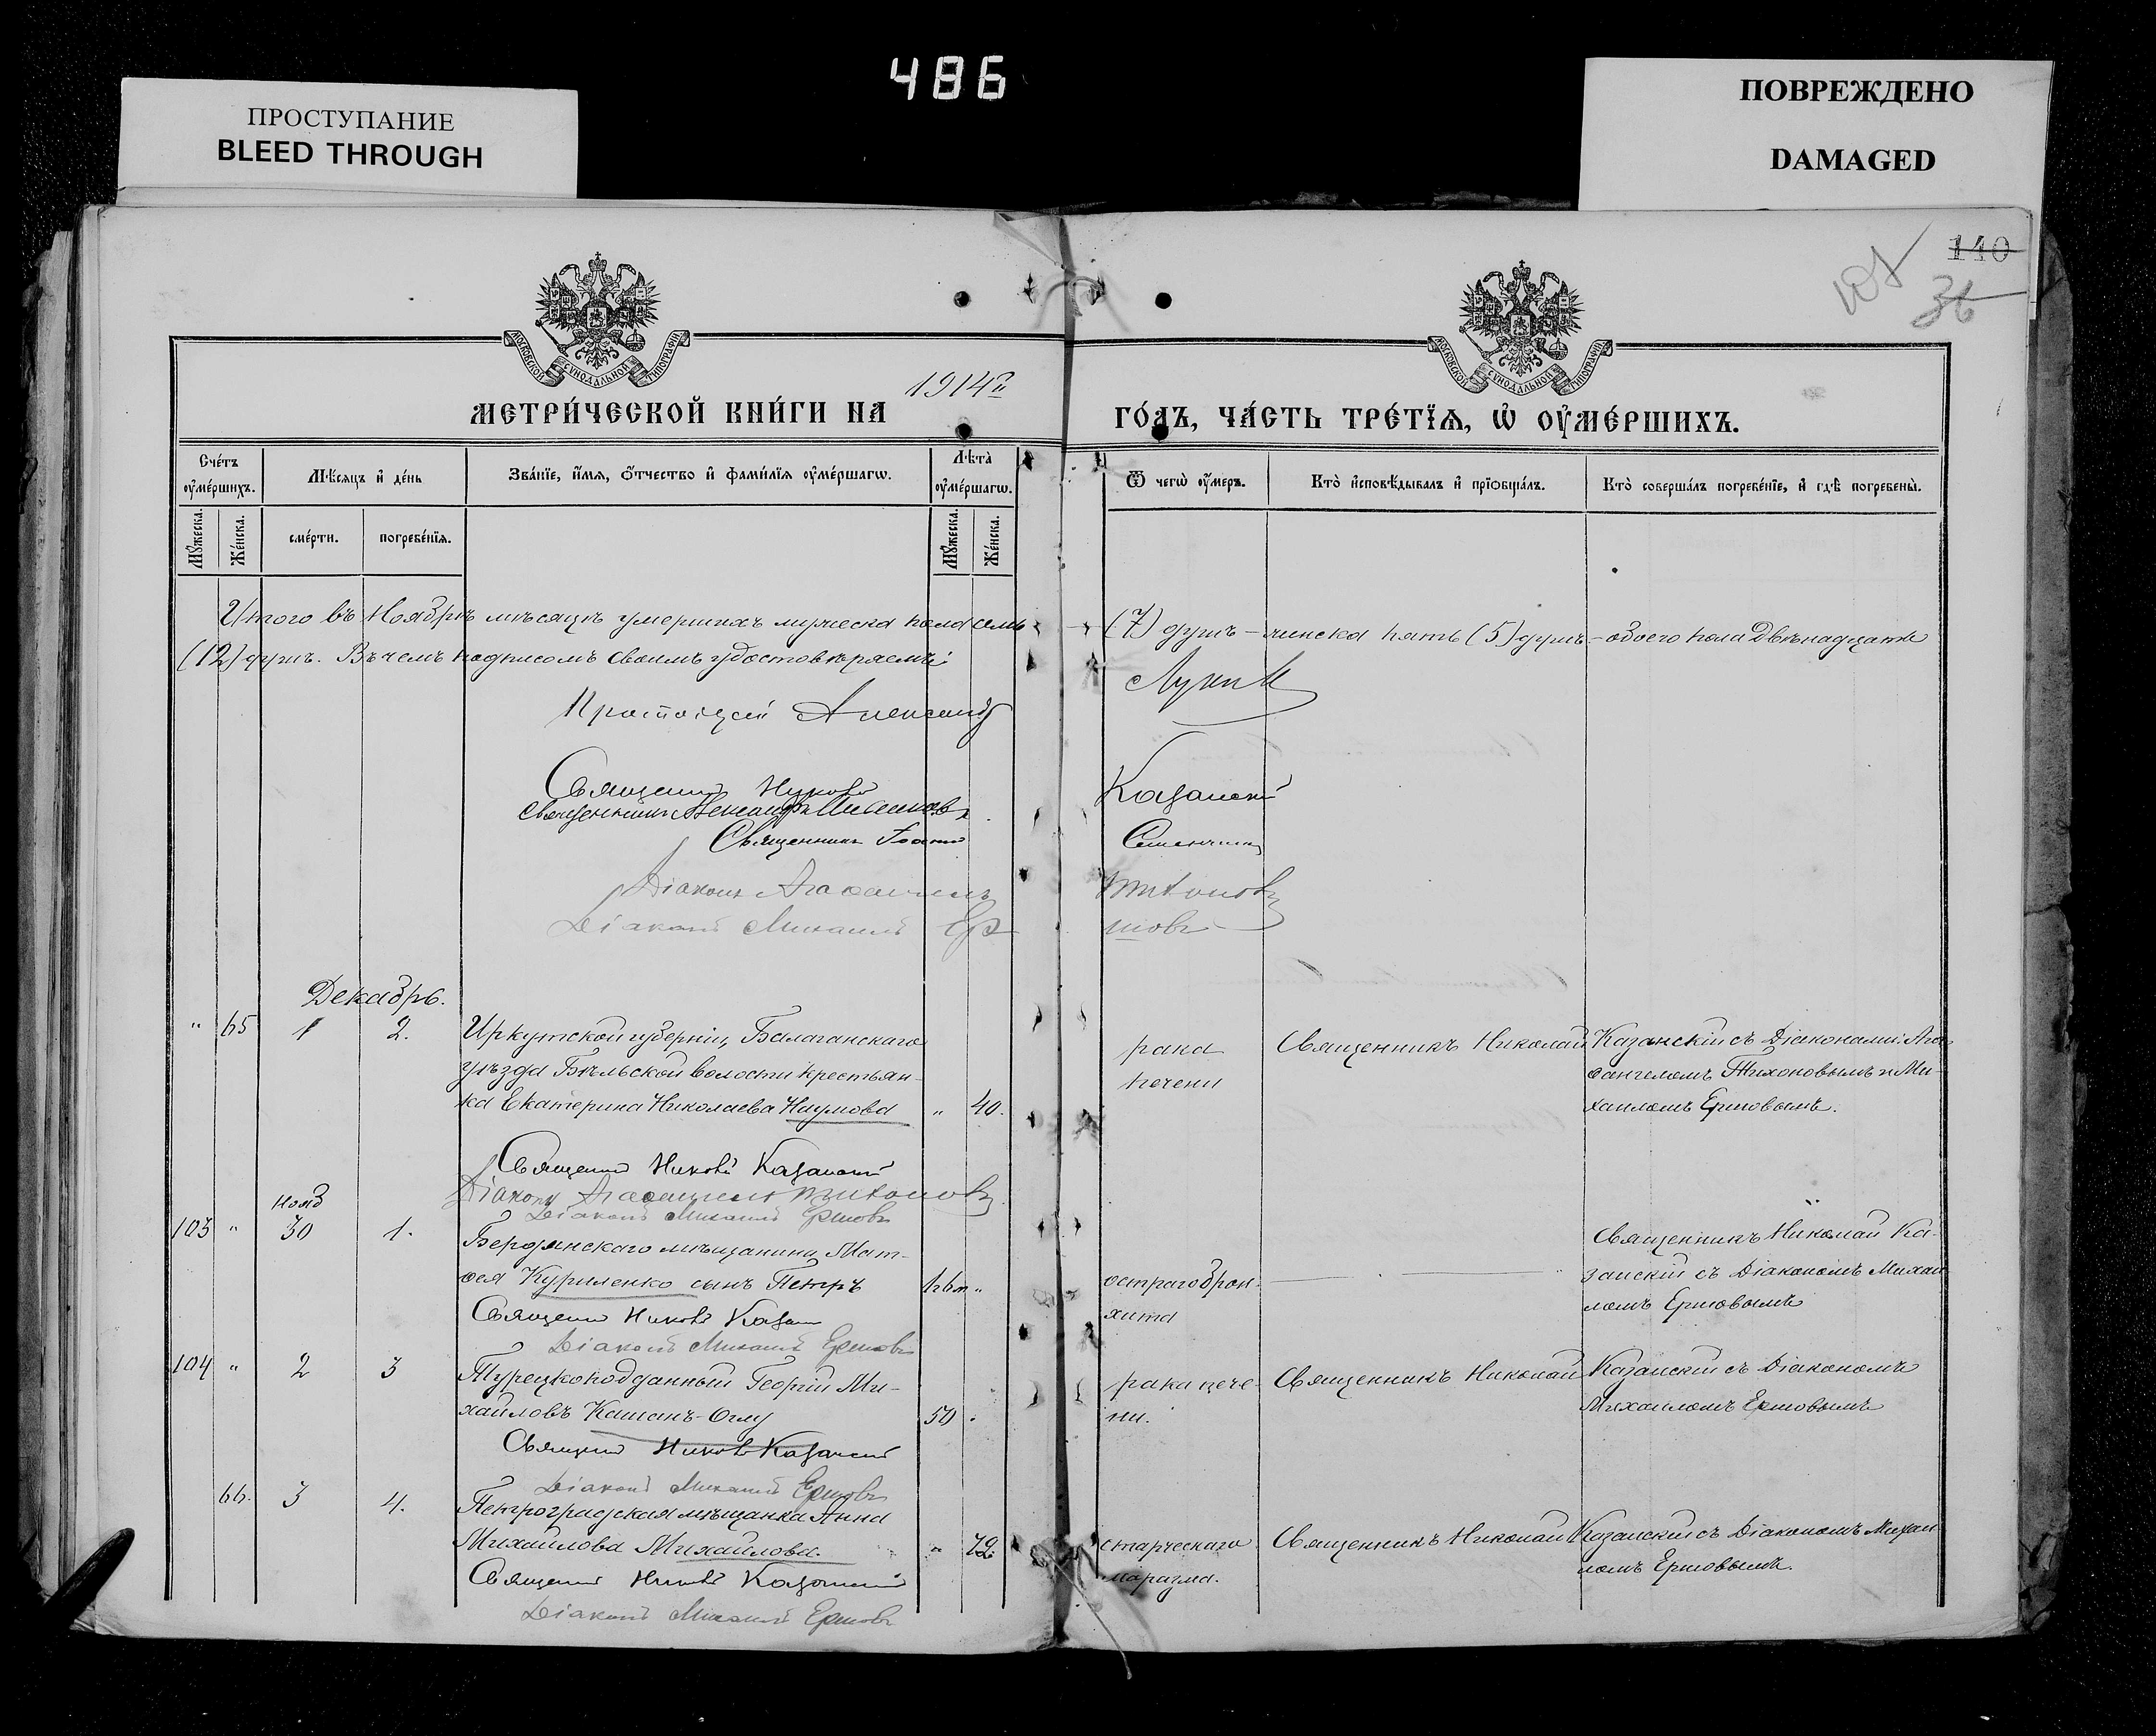 486
ПРОСТУПАНИЕ
BLEED THROUGH
ПОВРЕЖДЕНО
DAMAGED
140
36
МОСКОВСКОЙ СУНОДАЛЬНОЙ ТИПОГРАФІИ
МОСКОВСКОЙ СУНОДАЛЬНОЙ ТИПОГРАФІИ
МЕТРИ́ЧЕСКОЙ КНИ́ГИ НА 1914 г. ГО́ДЪ, ЧА́СТЬ ТРЕ́ТІѦ, Ѡ҆ ОУ҆МЕ́РШИХЪ.
Сче́тъ оу҆ме́ршихъ.
Мѣ́сяцъ и҆ де́нь
Зва́нїе, и҆́мя, ѻ҆́тчество и҆ фами́лїя оу҆ме́ршагѡ.
Лѣ́та оу҆ме́ршагѡ.
Ѿ чегѡ̀ оу҆́меръ.
Кто̀ и҆сповѣ́дывалъ и҆ прїѡбща́лъ.
Кто̀ соверша́лъ погребе́нїе, и҆ гдѣ̀ погребены̀.
Мꙋ́жеска. Же́нска.
сме́рти. погребе́нїя.
Мꙋ́жеска. Же́нска.
Итого въ Ноябрѣ мѣсяцѣ умершихъ мужеска пола семь (7) душъ – женска пять (5) душъ – обоего пола Двѣнадцать
(12) душъ. Въ чемъ подписомъ своимъ удостовѣряемъ:
Протоіерей Александр Лукин
Священник Николай Казанскій
Священникъ Александръ
Священникъ Іоанн
Діаконъ Агаѳангелъ Тихоновъ
Діаконъ Михаилъ Ершовъ
Декабрь.
" 65 1 2. Иркутской губерніи, Балаганскаго
уѣзда Бѣльской волости крестьян-
ка Екатерина Николаева Наумова " 40.
рака
печени
Священникъ Николай Казанскій съ Діаконами: Ага-
ѳангеломъ Тихоновымъ и Ми-
хаиломъ Ершовымъ.
Священник Николай Казанскій
Діаконъ Агаѳангелъ Тихоновъ
Діаконъ Михаилъ Ершовъ
Нояб
103 " 30 1. Бердянскаго мѣщанина, Мат-
ѳея Куриленко сынъ Петръ "
остраго брон-
хита
Священникъ Николай Ка-
занскій съ Діакономъ Михаи-
ломъ Ершовымъ
Священник Николай Казан
Діаконъ Михаилъ Ершовъ
104 " 2 3 Турецкоподданный Георгій Ми-
хайловъ Кашанъ-Оглу 50
рака пече-
ни.
Священникъ Николай Казанскій съ Діакономъ
Михаиломъ Ершовымъ
Священник Николай Казанскій
Діаконъ Михаилъ Ершовъ
66. 3 4. Петроградская мѣщанка Анна
Михайлова Михайлова. " 72.
старческаго
маразма.
Священникъ Николай Казанскій съ Діакономъ Михаи-
ломъ Ершовымъ.
Священник Николай Казанскій
Діаконъ Михаилъ Ершовъ